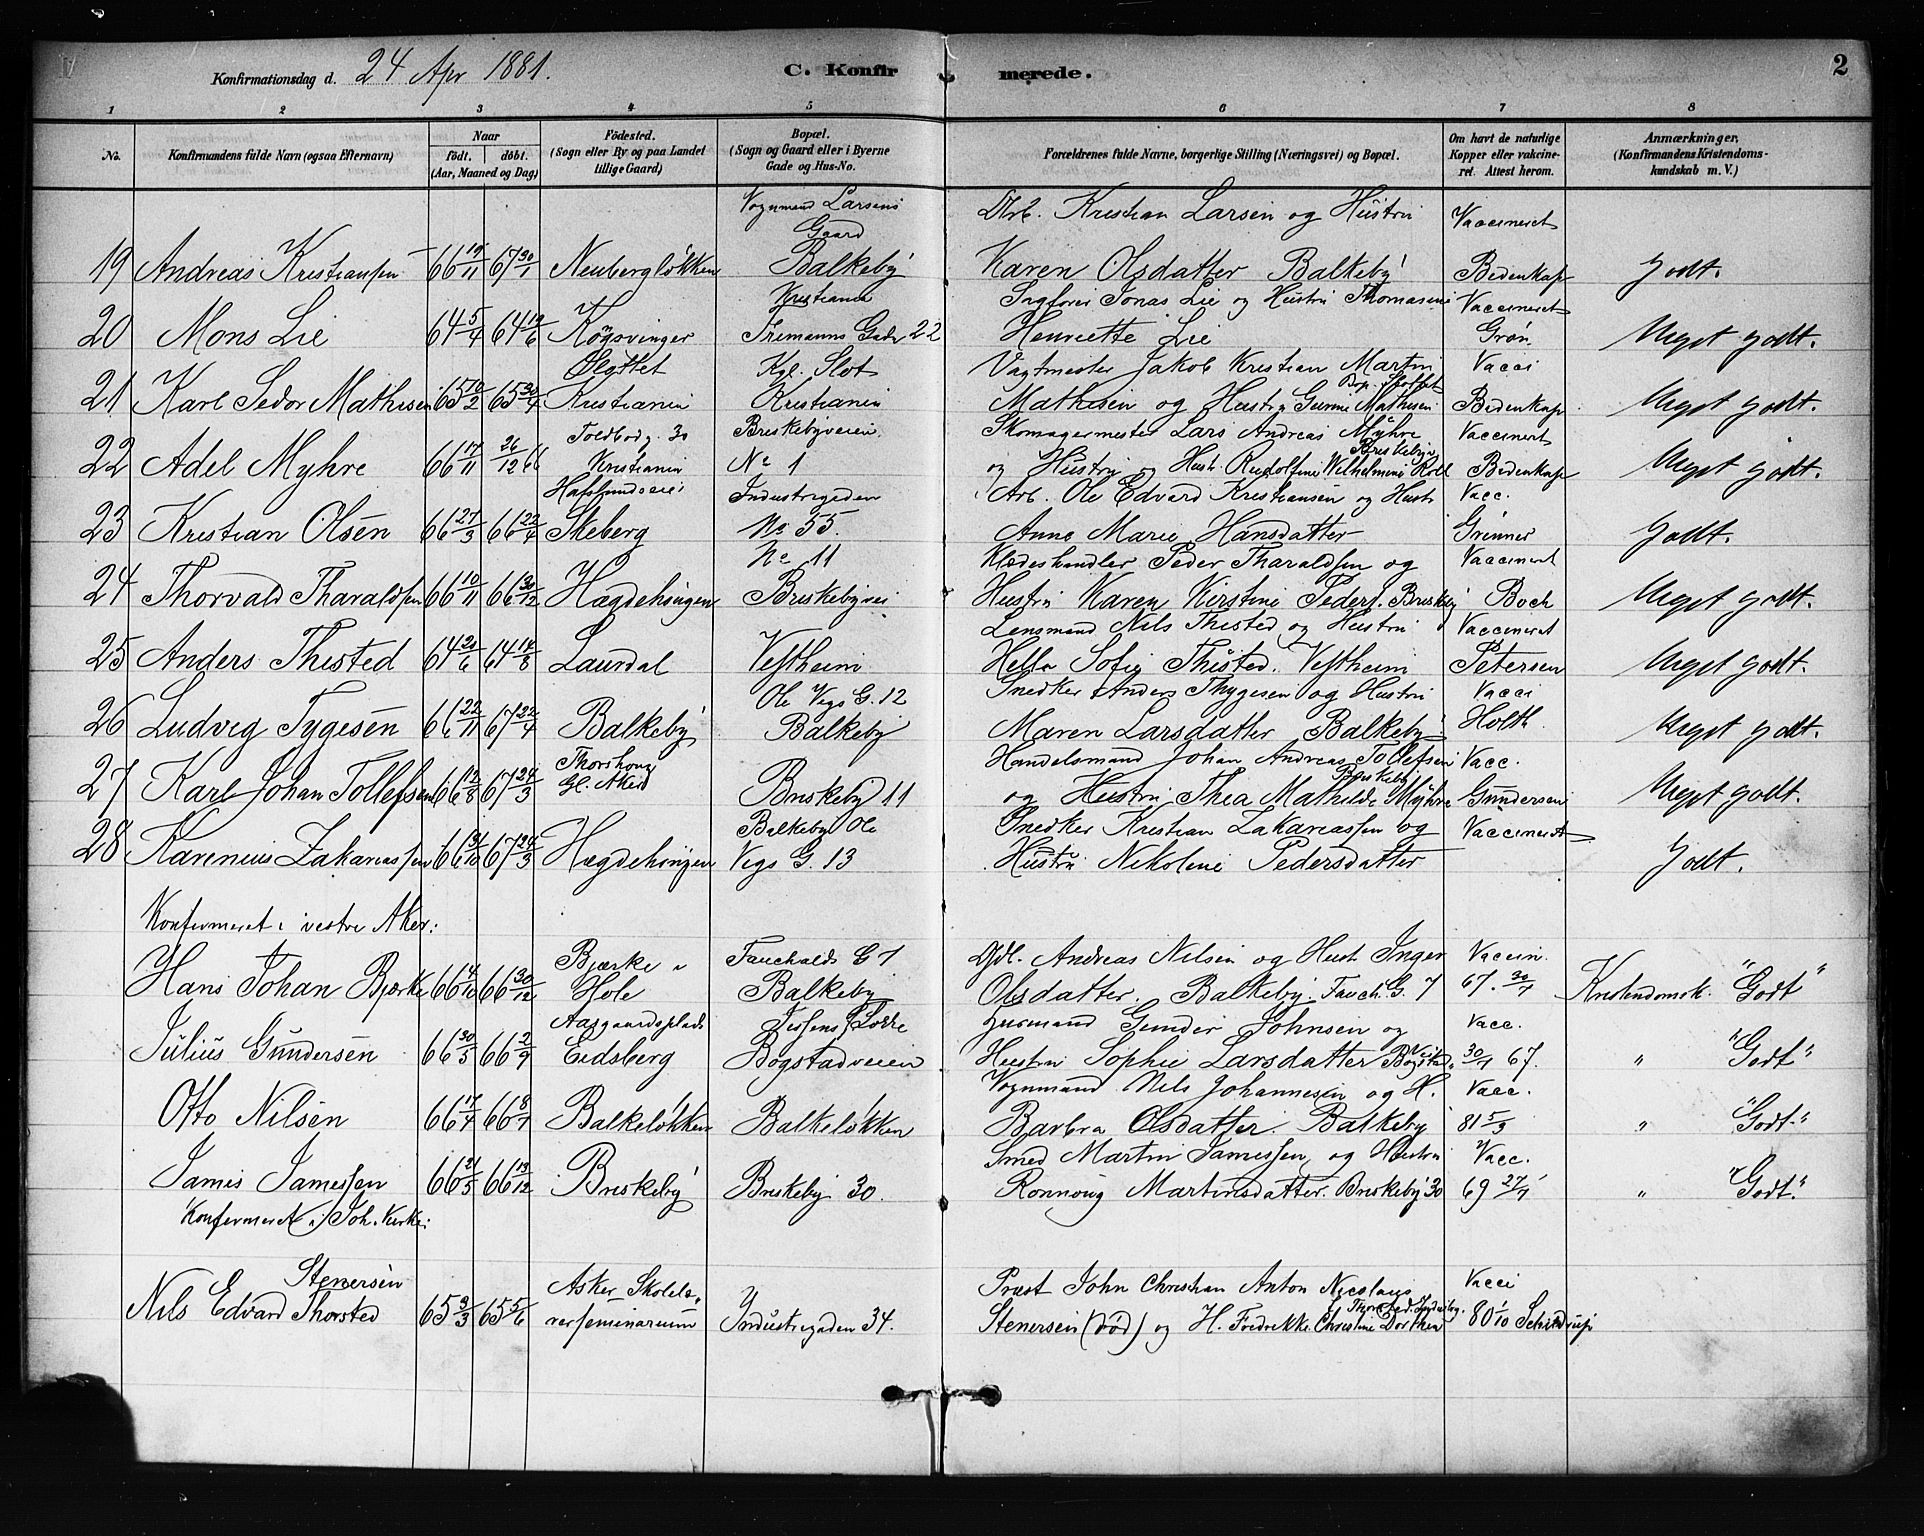 Konfirmationsdag d. 24 Apr 1881. C. Konfirmerede. 2
1 2 3 4 5 6 7 8
No. Konfirmandens fulde Navn (ogsaa Efternavn) Naar födt. döbt. (Aar, Maaned og Dag) Födested. (Sogn eller By og paa Landet tillige Gaard) Bopæl. (Sogn og Gaard eller i Byerne Gade og Hus-No. Forældrenes fulde Navne, borgerlige Stilling (Næringsvei) og Bopæl. Om havt de naturlige Kopper eller vakcineret. Attest herom. Anmærkninger, (Konfirmandens Kristendomskundskab m. V.)
Vognmand Larsens Gaard Arb. Kristian Larsen og Hustru Vaccineret
19 Andreas Kristiansen 66 19/11 67 30/1 Neubergløkken Balkeby Karen Olsdatter Balkeby Bidenkap Godt.
Kristiania Ingfører Jonas Lie og Hustru Thomasine Vaccineret
20 Mons Lie 64 5/4 64 19/6 Kogsvinger Gade 22 Henriette Lie Grøn Meget godt.
Slottet Kgl. Slot Vagtmester Jakob Kristian Martin Vacci
21 Karl Sedor Mathisen 65 10/2 65 30/4 Kristiania Kristiania Mathisen og Hustru Gunine Mathisen Bidenkap Meget godt.
Toldbodg. 30 Briskebyveien Skomagermester Lars Andreas Myhre Vaccinert
22 Adel Myhre 66 17/11 26/12 66 Kristiania No 1 og Hustru Rudolfine Wilhelmine Roll Briskebyv Bidenkap Meget godt.
Hafslundveie Industrigaden Arb. Ole Edvard Kristiansen og Hustr Vacc.
23 Kristian Olsen 66 27/3 66 22/4 Skeberg No 55. Anne Marie Hansdatter Grønner Godt.
No 11 Klædeshandler Peder Tharaldsen og Vaccineret
24 Thorvald Tharaldsen 66 10/11 66 30/12 Hægdehaugen Briskebyvei Hustru Karen Kirstine Peders. Briskeby Boch Meget godt.
Lensmand Nils Thisted og Hustru Vaccineret
25 Anders Thisted 64 21/6 64 14/8 Laurdal Vestheim Sofie Thisted. Vestheim Petersen Meget godt.
Ole Vigs G. 12 Snedker Anders Thygesen og Hustru Vacci
26 Ludvig Tygesen 66 22/11 67 22/4 Balkeby Balkeby Maren Larsdatter Balkeby Holth Meget godt.
Thorshaug Handelsmand Johan Andreas Tollefsen Vacc.
27 Karl Johan Tollefsen 66 12/8 67 24/3 Gl. Aker Briskeby 11 og Hustru Thea Mathilde Myhre Briskeby Gundersen Meget godt.
Balkeby Ole Snedker Kristian Zakariassen og Vaccineret
28 Karenius Zakariassen 66 31/10 67 24/3 Hægdehaugen Vigs G. 13 Hustru Nikoline Pedersdatter Godt.
Konfirmeret i vestre Aker:
Bjærke i Fauchalds G 7 Gdl. Andreas Nilsen og Hust Inger Vaccin.
Hans Johan Bjerke 66 4/10 66 30/12 Hole Balkeby Olsdatter. Balkeby Fauch. G. 7 67. 30/7 Kristendomsk. "Godt"
Aasgaardsplads Jessens Løkke Husmand Gunder Johnsen og Vacc.
Julius Gundersen 66 30/5 66 2/9 Eidsberg Bogstadveien Hustru Sophie Larsdatter Bogstadv. 30/7 67. " "Godt"
Vognmand Nils Johannesen og H. Vacc.
Otto Nilsen 66 17/4 66 8/7 Balkeløkken Balkeløkken Barbra Olsdatter. Balkeby 81 5/3 " "Godt"
Smed Martin Jamessen og Hustru Vacc.
James Jamessen 66 21/5 66 19/12 Briskeby Briskeby 30. Rønnoug Martinsdatter. Briskeby 30 69 27/7 " "Godt"
Konfirmeret i Joh. Kirke:
Stenersen Asker Skolelæ- Præst John Christian Anton Nicolaus Vacci
Nils Edvard Thorsted 65 3/3 65 5/6 rerseminarium Industrigaden 34. Stenersen (død) og H. Fredrikke Christine Dorthea 80 1/10